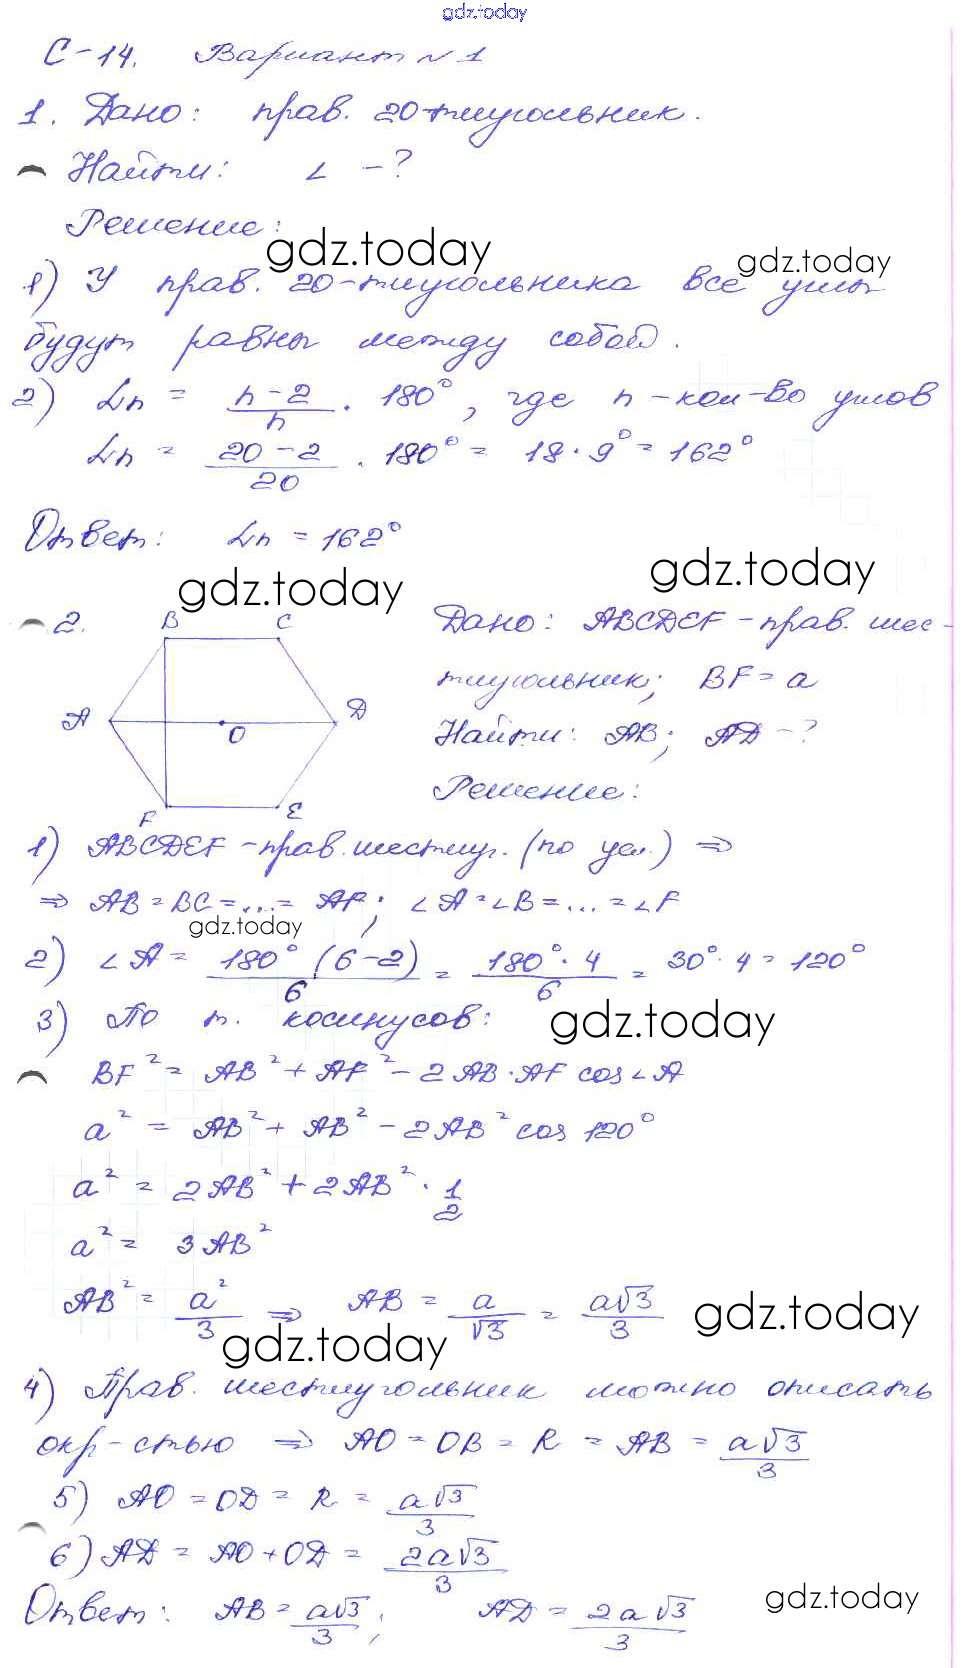 gdz.today
С-14. Вариант №1
1. Дано: прав. 20-тиугольник.
Найти: ∠ -?
Решение:
gdz.today gdz.today
1) У прав. 20-тиугольника все углы
будут равны между собой.
2) ∠n = (n-2)/n · 180°, где n - кол-во углов
∠n = (20-2)/20 · 180° = 18·9° = 162°
Ответ: ∠n = 162°
gdz.today gdz.today
2. B C A D O F E
Дано: ABCDEF - прав. шес-
тиугольник; BF = a
Найти: AB; AD -?
Решение:
1) ABCDEF - прав. шестиуг. (по усл.) ⇒
⇒ AB = BC = ... = AF; ∠A = ∠B = ... = ∠F
gdz.today
2) ∠A = 180°(6-2)/6 = 180°·4/6 = 30°·4 = 120°
3) По т. косинусов: gdz.today
BF² = AB² + AF² - 2AB·AF cos∠A
a² = AB² + AB² - 2AB² cos 120°
a² = 2AB² + 2AB² · 1/2
a² = 3AB²
AB² = a²/3 ⇒ AB = a/√3 = a√3/3 gdz.today
gdz.today
4) Прав. шестиугольник можно описать
окр-стью ⇒ AO = OB = R = AB = a√3/3
5) AO = OD = R = a√3/3
6) AD = AO + OD = 2a√3/3
Ответ: AB = a√3/3; AD = 2a√3/3 gdz.today